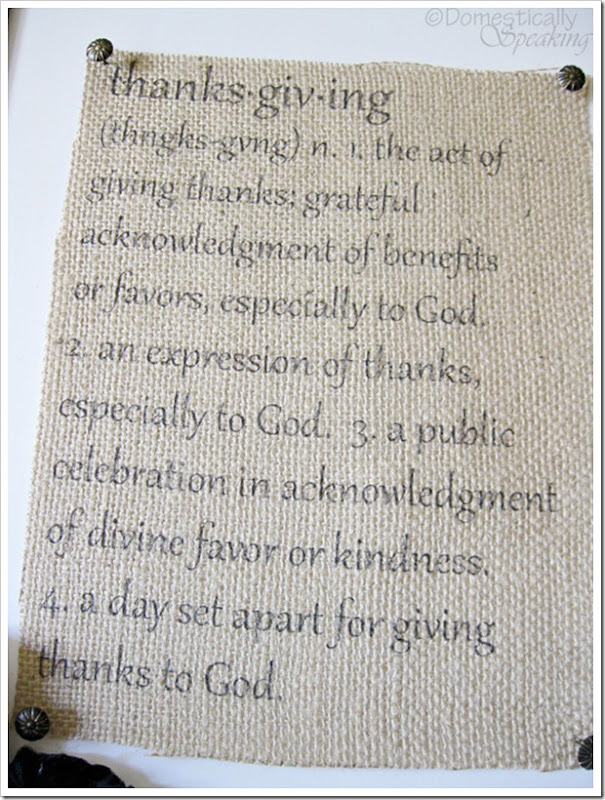 ©Domestically
Speaking
thanks·giv·ing
(thngks-gvng) n. 1. the act of
giving thanks; grateful
acknowledgment of benefits
or favors, especially to God.
2. an expression of thanks,
especially to God. 3. a public
celebration in acknowledgment
of divine favor or kindness.
4. a day set apart for giving
thanks to God.